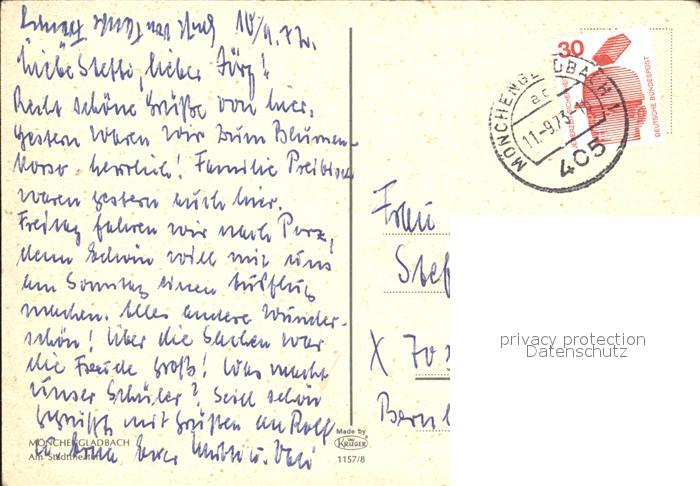 10/9. 73.
Liebe Steffi, lieber Jörg!
Recht schöne Grüße von hier.
Gestern waren wir zum Blumen-
korso herrlich! Familie Preibisch
waren gestern auch hier.
Freitag fahren wir nach Porz,
denn Erwin will mit uns
am Sonntag einen Ausflug
machen. Alles andere wunder-
schön! Über die Sachen war
die Freude groß! Was macht
unser Schüler? Seid schön
gegrüßt mit Grüßen an Rolf
Eure Mutti u. Vati
MÖNCHENGLADBACH
Am Stadttheater
Made by
KRÜGER
1157/8
30
DEUTSCHE BUNDESPOST
MÖNCHENGLADBACH 1
ac
11.-9.73
405
Frau
Stef
X 703
Bern
privacy protection
Datenschutz